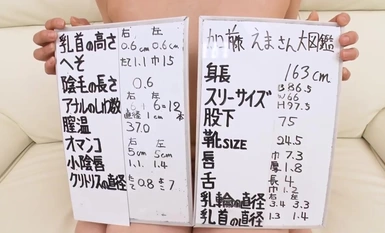 乳首の高さ 右 0.6cm 左 0.6cm
へそ たて1.1 巾15
陰毛の長さ 0.6
アナルのしわ数 6+6=12本
直径1cm
膣温 37.0
オマンコ 右 5cm 左 5cm
小陰唇 1.1 1.4
クリトリスの直径 たて0.8 よこ7
加藤えまさん大図鑑
身長 163cm
スリーサイズ B86.5 W66 H97.5
股下 75
靴SIZE 24.5
唇 巾7.3 1.8
舌 長4 巾1.2
右 左
乳輪の直径 3.4 3.3
乳首の直径 1.3 1.4